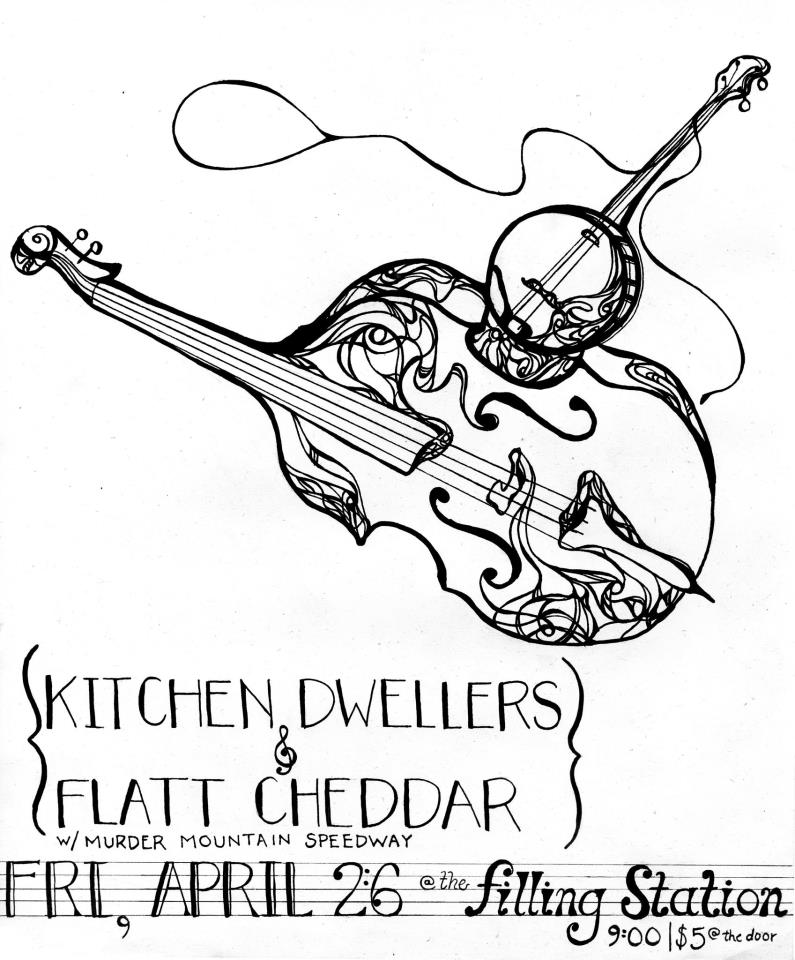 KITCHEN DWELLERS
&
FLATT CHEDDAR
W/ MURDER MOUNTAIN SPEEDWAY
FRI, APRIL 26 @ the filling Station
9:00 | $5 @ the door